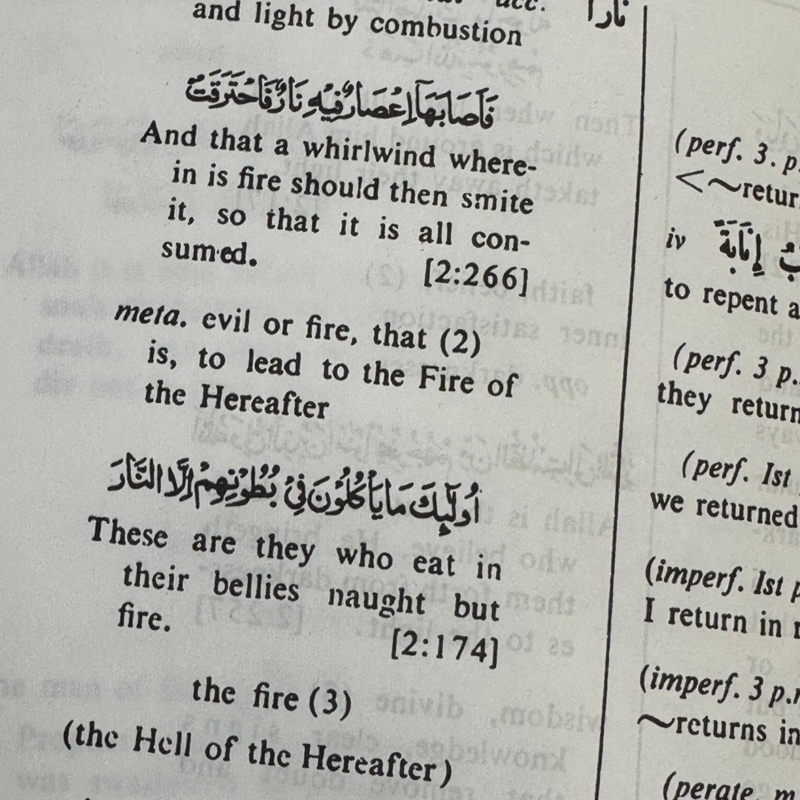 acc. نارا
and light by combustion
فَأَصَابَهَآ إِعْصَارٌ فِيهِ نَارٌ فَاحْتَرَقَتْ
And that a whirlwind where-
in is fire should then smite
it, so that it is all con-
sumed. [2:266]
meta. evil or fire, that (2)
is, to lead to the Fire of
the Hereafter
أُولَٰٓئِكَ مَا يَأْكُلُونَ فِي بُطُونِهِمْ إِلَّا النَّارَ
These are they who eat in
their bellies naught but
fire. [2:174]
the fire (3)
(the Hell of the Hereafter)
(perf. 3. p.
<~retur
iv إِنَابَةً
to repent a
(perf. 3 p.
they return
(perf. Ist
we returned
(imperf. Ist p
I return in
(imperf. 3 p.
~returns in
(perate. m